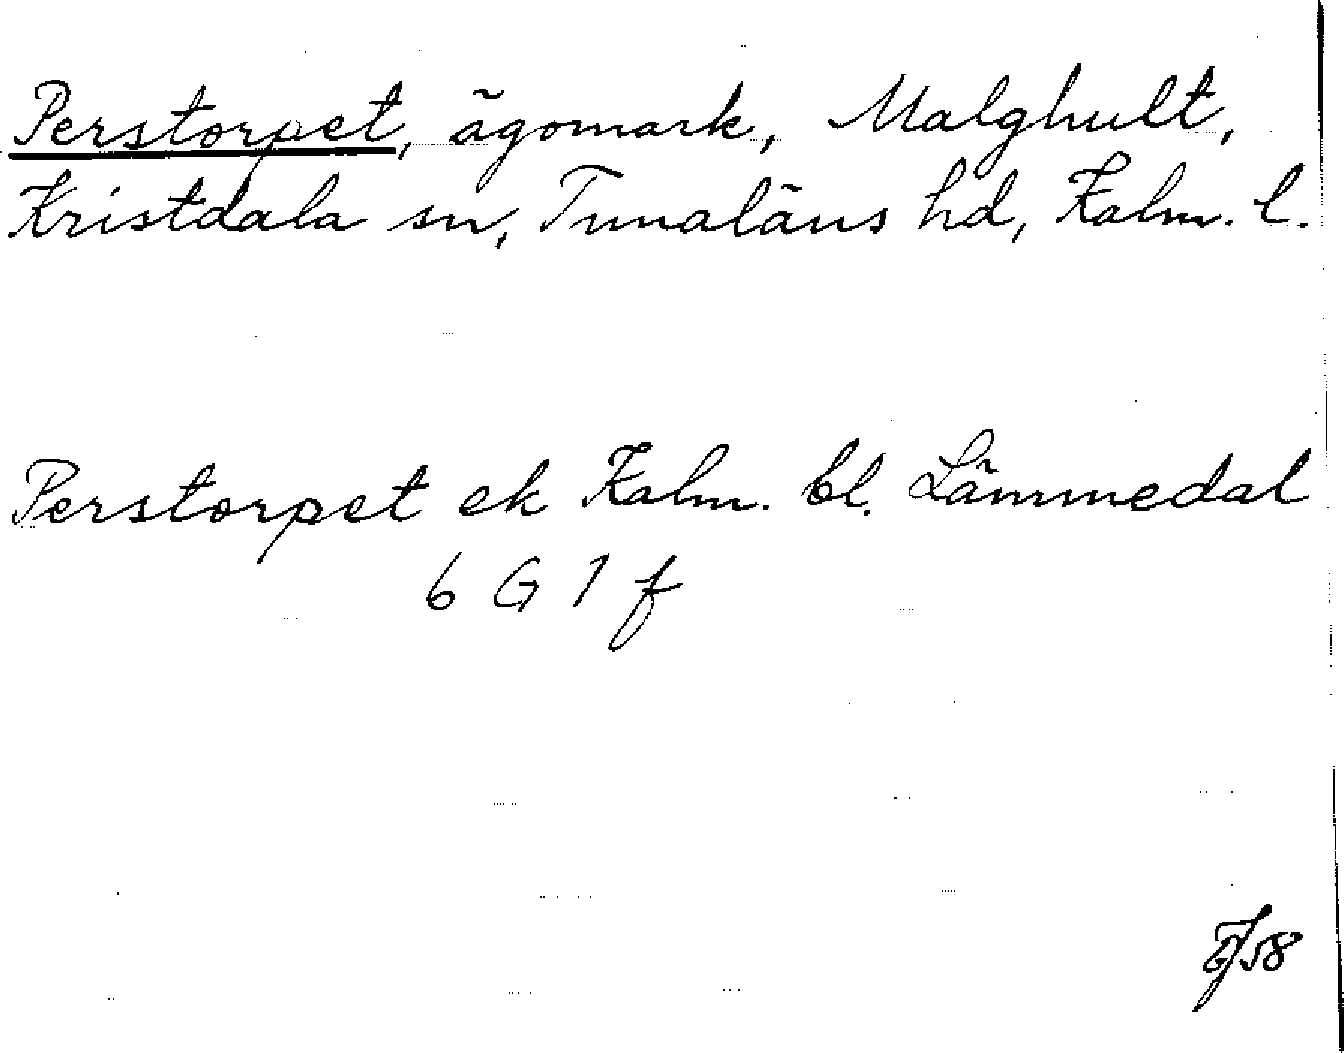 Perstorpet, ägomark, Malghult,
Kristdala sn, Tunaläns hd, Kalm. l.
Perstorpet ek Kalm. bl. Lämmedal
6 G 1 f